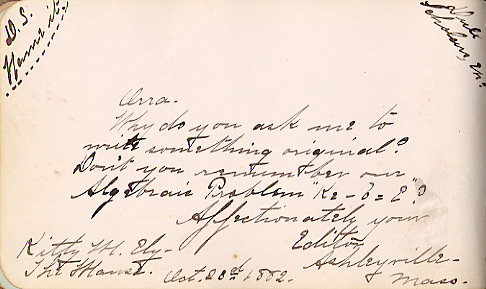 D. S.
Orra.
Why do you ask me to
write something original?
Don't you remember our
Algebraic Problem "K2 - 6 = E"?
Affectionately your
Editor
Kitty M. Ely-
The Manse.
Oct. 20th 1882.
Ashleyville-
Mass.